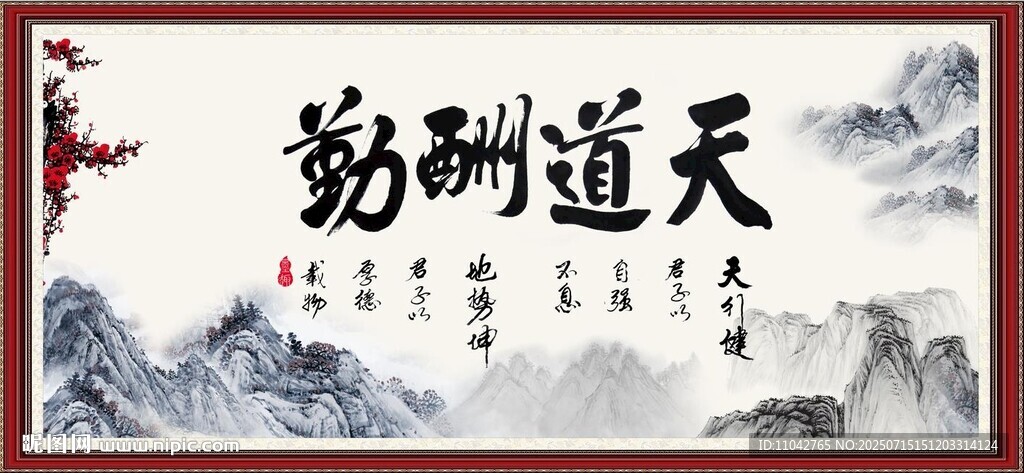 天道酬勤
天行健
君子以
自强
不息
地势坤
君子以
厚德
载物
昵图网 www.nipic.com
ID:11042765 NO:20250715151203314124